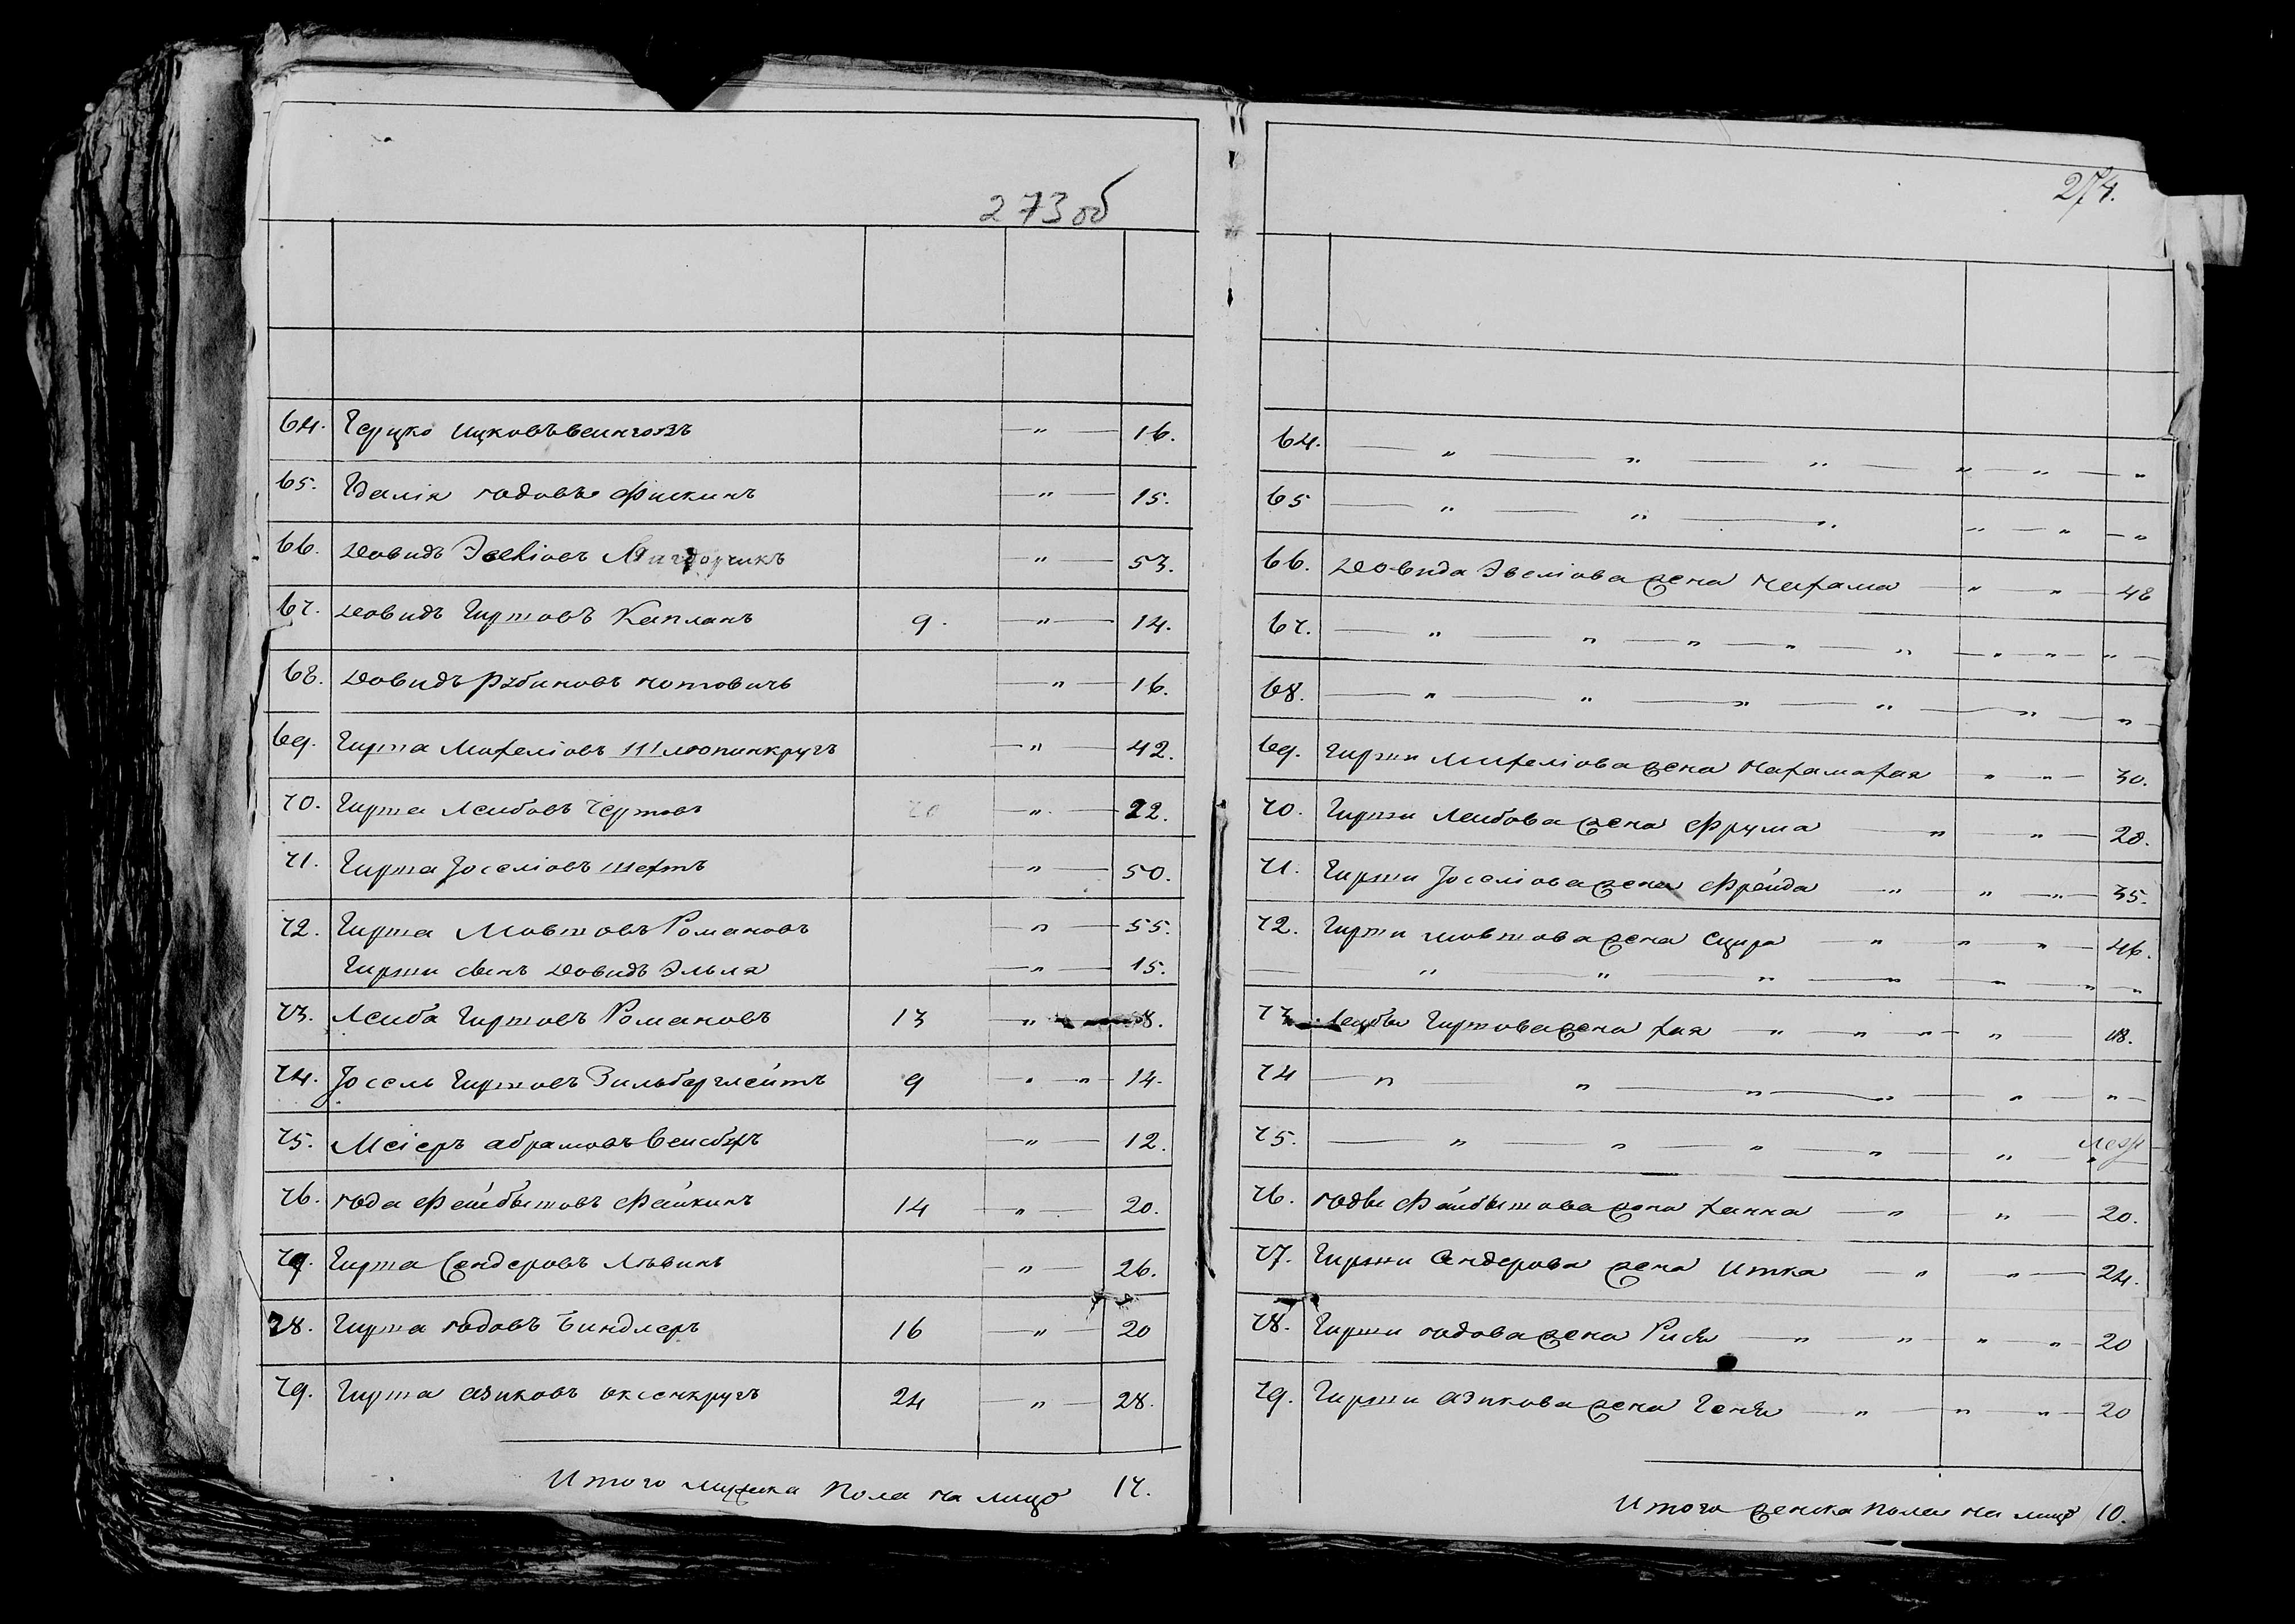 273 об
64. Герцко Ицковъ Веингозъ — " — 16.
65. Вдалiя Юдовъ Фискинъ — " — 15.
66. Довидъ Эвелiовъ — " — 53.
67. Довидъ Гиршовъ Капланъ 9. — " — 14.
68. Довидъ Рубиновъ Нотовичъ — " — 16.
69. Гирша Михелiовъ Шлюпинкругъ — " — 42.
70. Гирша Леибовъ Гершовъ — " — 22.
71. Гирша Iоселiовъ Шехтъ — " — 50.
72. Гирша Мовшовъ Романовъ — " — 55.
Гирши сынъ Довидъ Эльля — " — 15.
73. Леиба Гиршовъ Романовъ 13 — " 18.
74. Iоссель Гиршовъ Зильберглейтъ 9 " — " — 14.
75. Меiеръ Абрамовъ — " — 12.
76. Юда Фейбышовъ Фейкинъ 14 — " — 20.
77. Гирша Сендеровъ Лѣвинъ — " — 26.
78. Гирша Юдовъ Биндлеръ 16 — " — 20
79. Гирша Азиковъ Оксенкругъ 24 — " — 28.
Итого мужска пола на лицо 17.
274.
64. — " — " — " — " — " — "
65 — " — " — " " — " — "
66. Довида Эвелiова жена Нехама — " — " — 48
67. — " — " — " — " — " — " — " — " —
68. — " — " — " — " — " — "
69. Гирши Михелiова жена Нехамахая — " — " — 30.
70. Гирши Леибова жена Фрума — " " — 20.
71. Гирши Iоселiова жена Фрейда — " — " — " — 35.
72. Гирши Мовшова жена Сцира — " — " — " — 46.
— " — " — " — " — " — " — "
73. Леибы Гиршова жена Хая — " — " — " — " — 18.
74 — " " — " — " — " — " —
75. — " — " — " — " — " — "
76. Юды Фейбышова жена Ханна — " — " — 20.
77. Гирши Сендерова жена Итка — " — " — 24.
78. Гирши Юдова жена Рися — " — " — " — " — 20
79. Гирши Азикова жена Геня — " — " — " — 20
Итого женска пола на лицо 10.